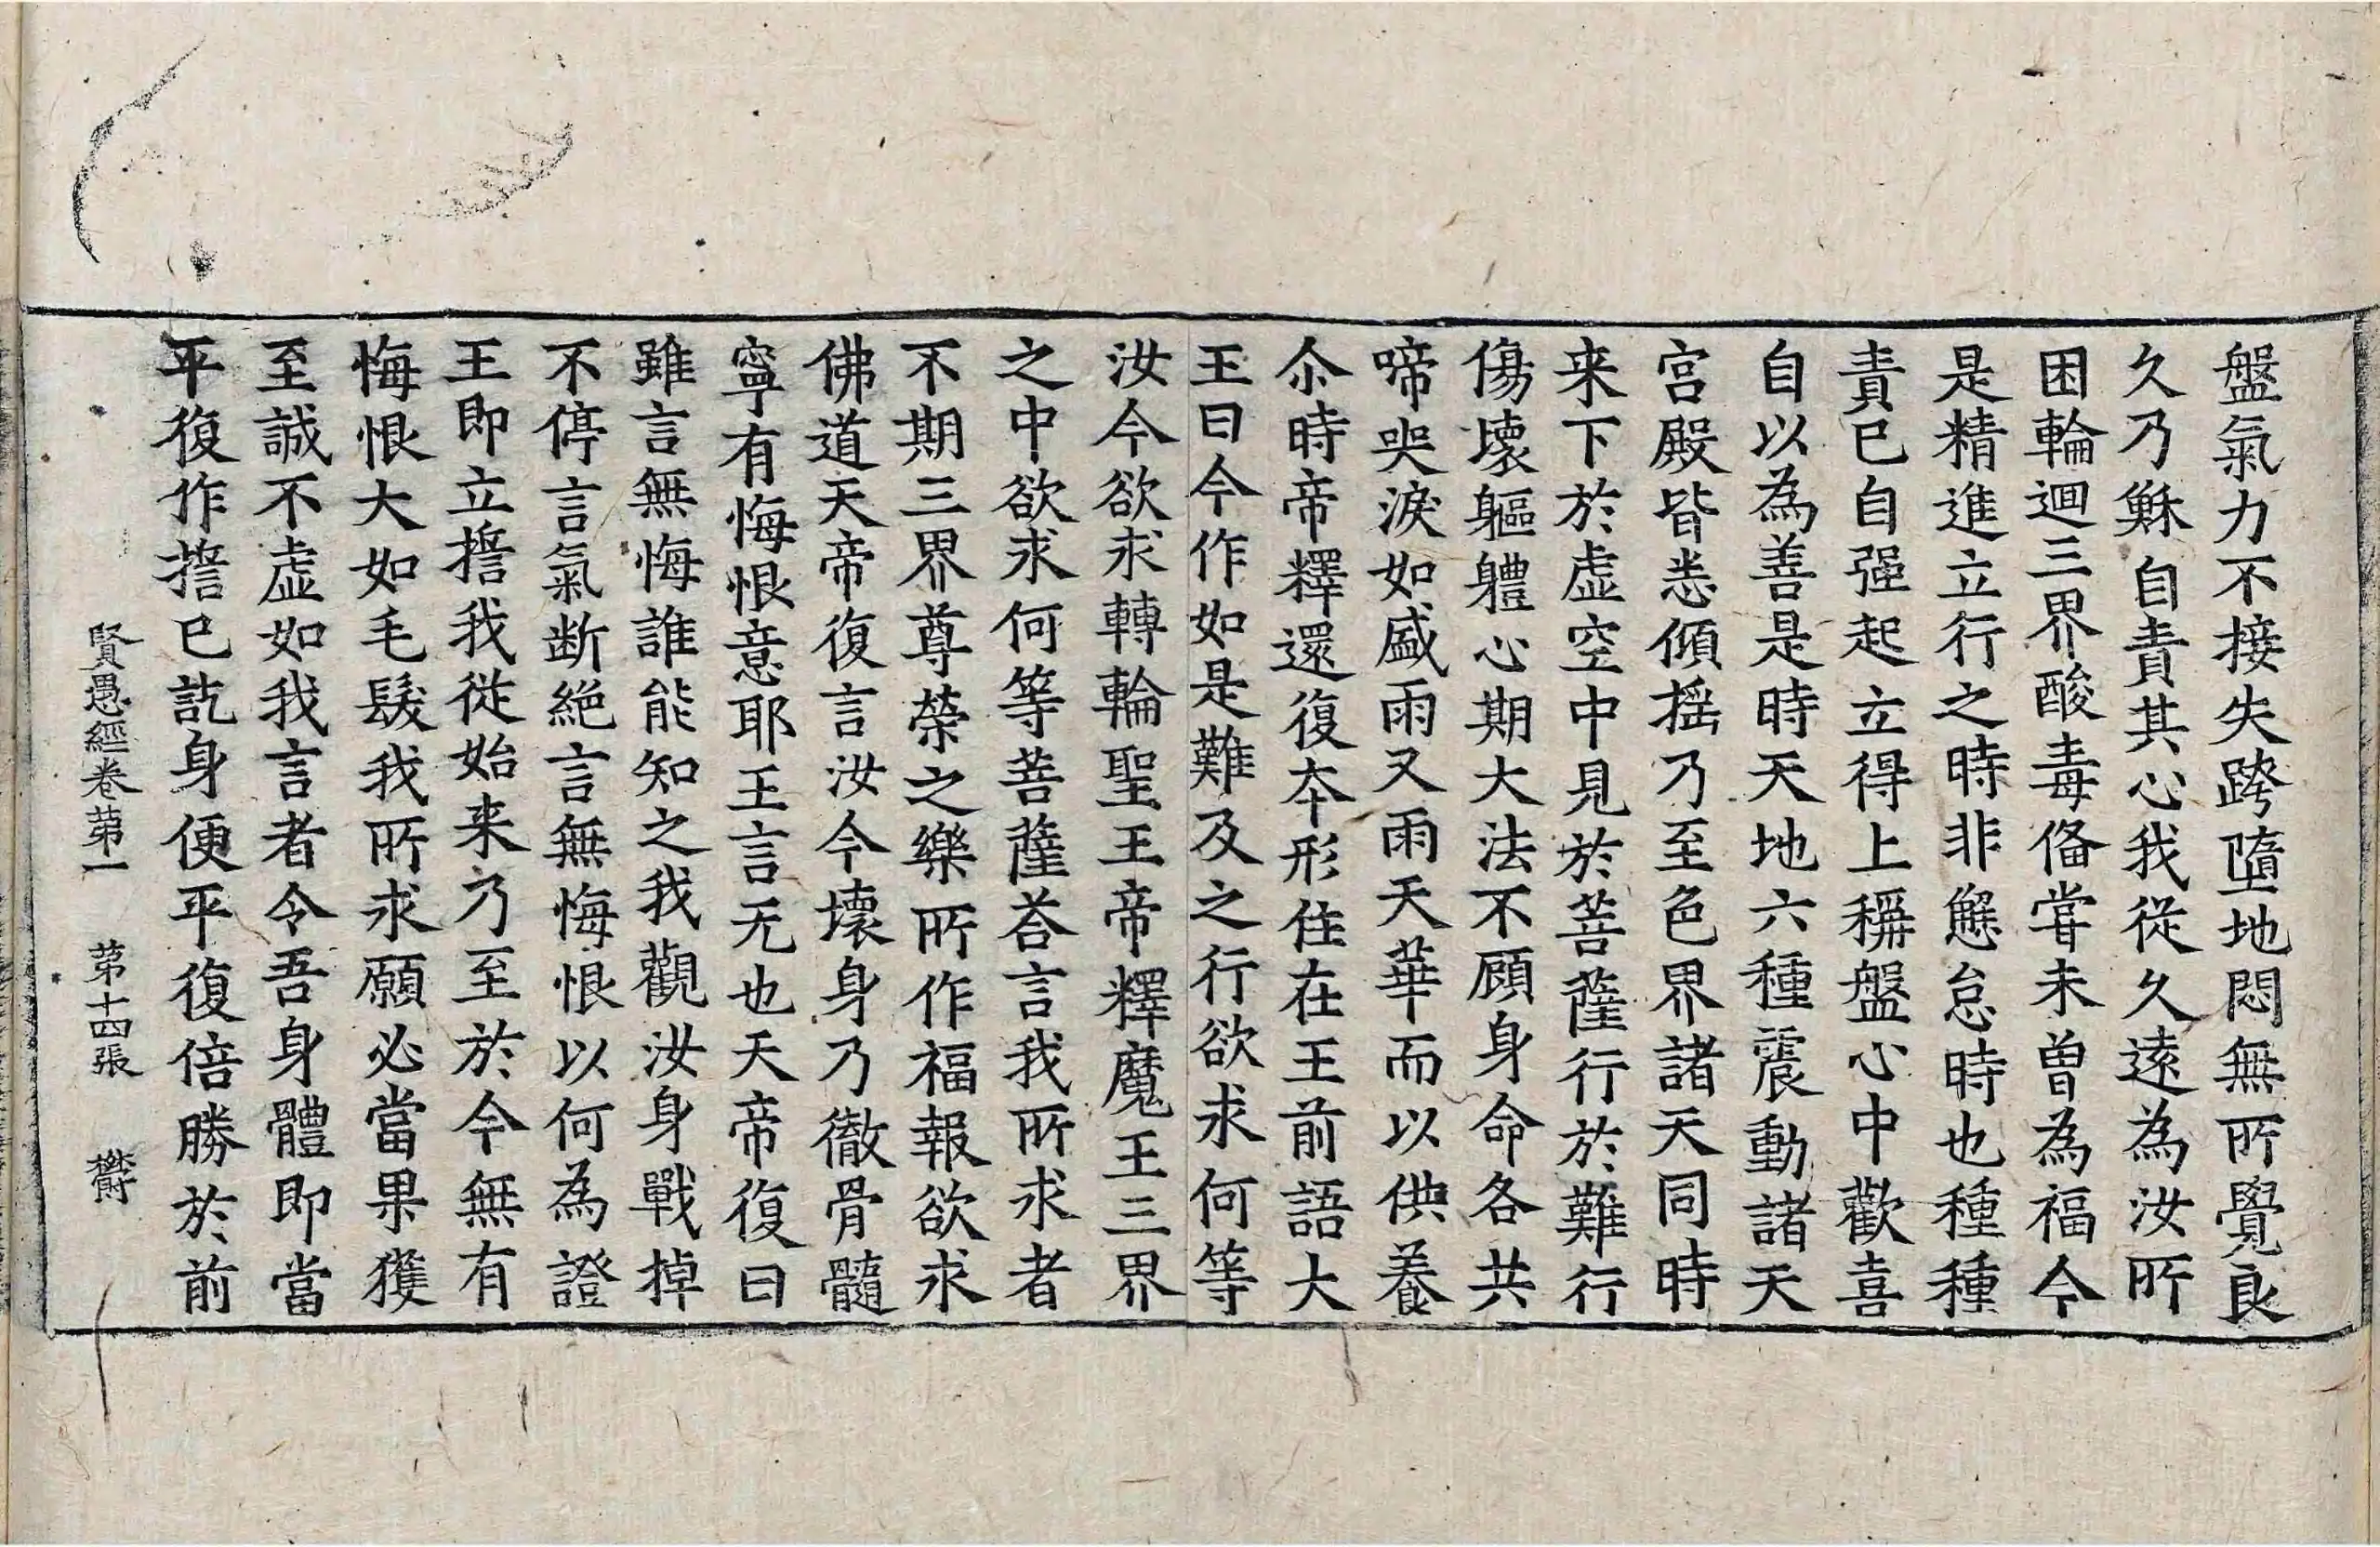 盤氣力不接失跨墮地悶無所覺良
久乃穌自責其心我從久遠為汝所
困輪迴三界酸毒俻甞未曾為福今
是精進立行之時非懈怠時也種種
責已自强起立得上稱盤心中歡喜
自以為善是時天地六種震動諸天
宮殿皆悉傾揺乃至色界諸天同時
来下於虚空中見於菩薩行於難行
傷壞軀體心期大法不顧身命各共
啼哭淚如盛雨又雨天華而以供養
尒時帝釋還復夲形住在王前語大
王曰今作如是難及之行欲求何等
汝今欲求轉輪聖王帝釋魔王三界
之中欲求何等菩薩荅言我所求者
不期三界尊榮之樂所作福報欲求
佛道天帝復言汝今壞身乃徹骨髓
寧有悔恨意耶王言无也天帝復曰
雖言無悔誰能知之我觀汝身戰掉
不停言氣断絕言無悔恨以何為證
王即立擔我從始来乃至於今無有
悔恨大如毛髮我所求願必當果獲
至誠不虚如我言者令吾身體即當
平復作擔已訖身便平復倍勝於前
賢愚經卷苐一 苐十四張 欝